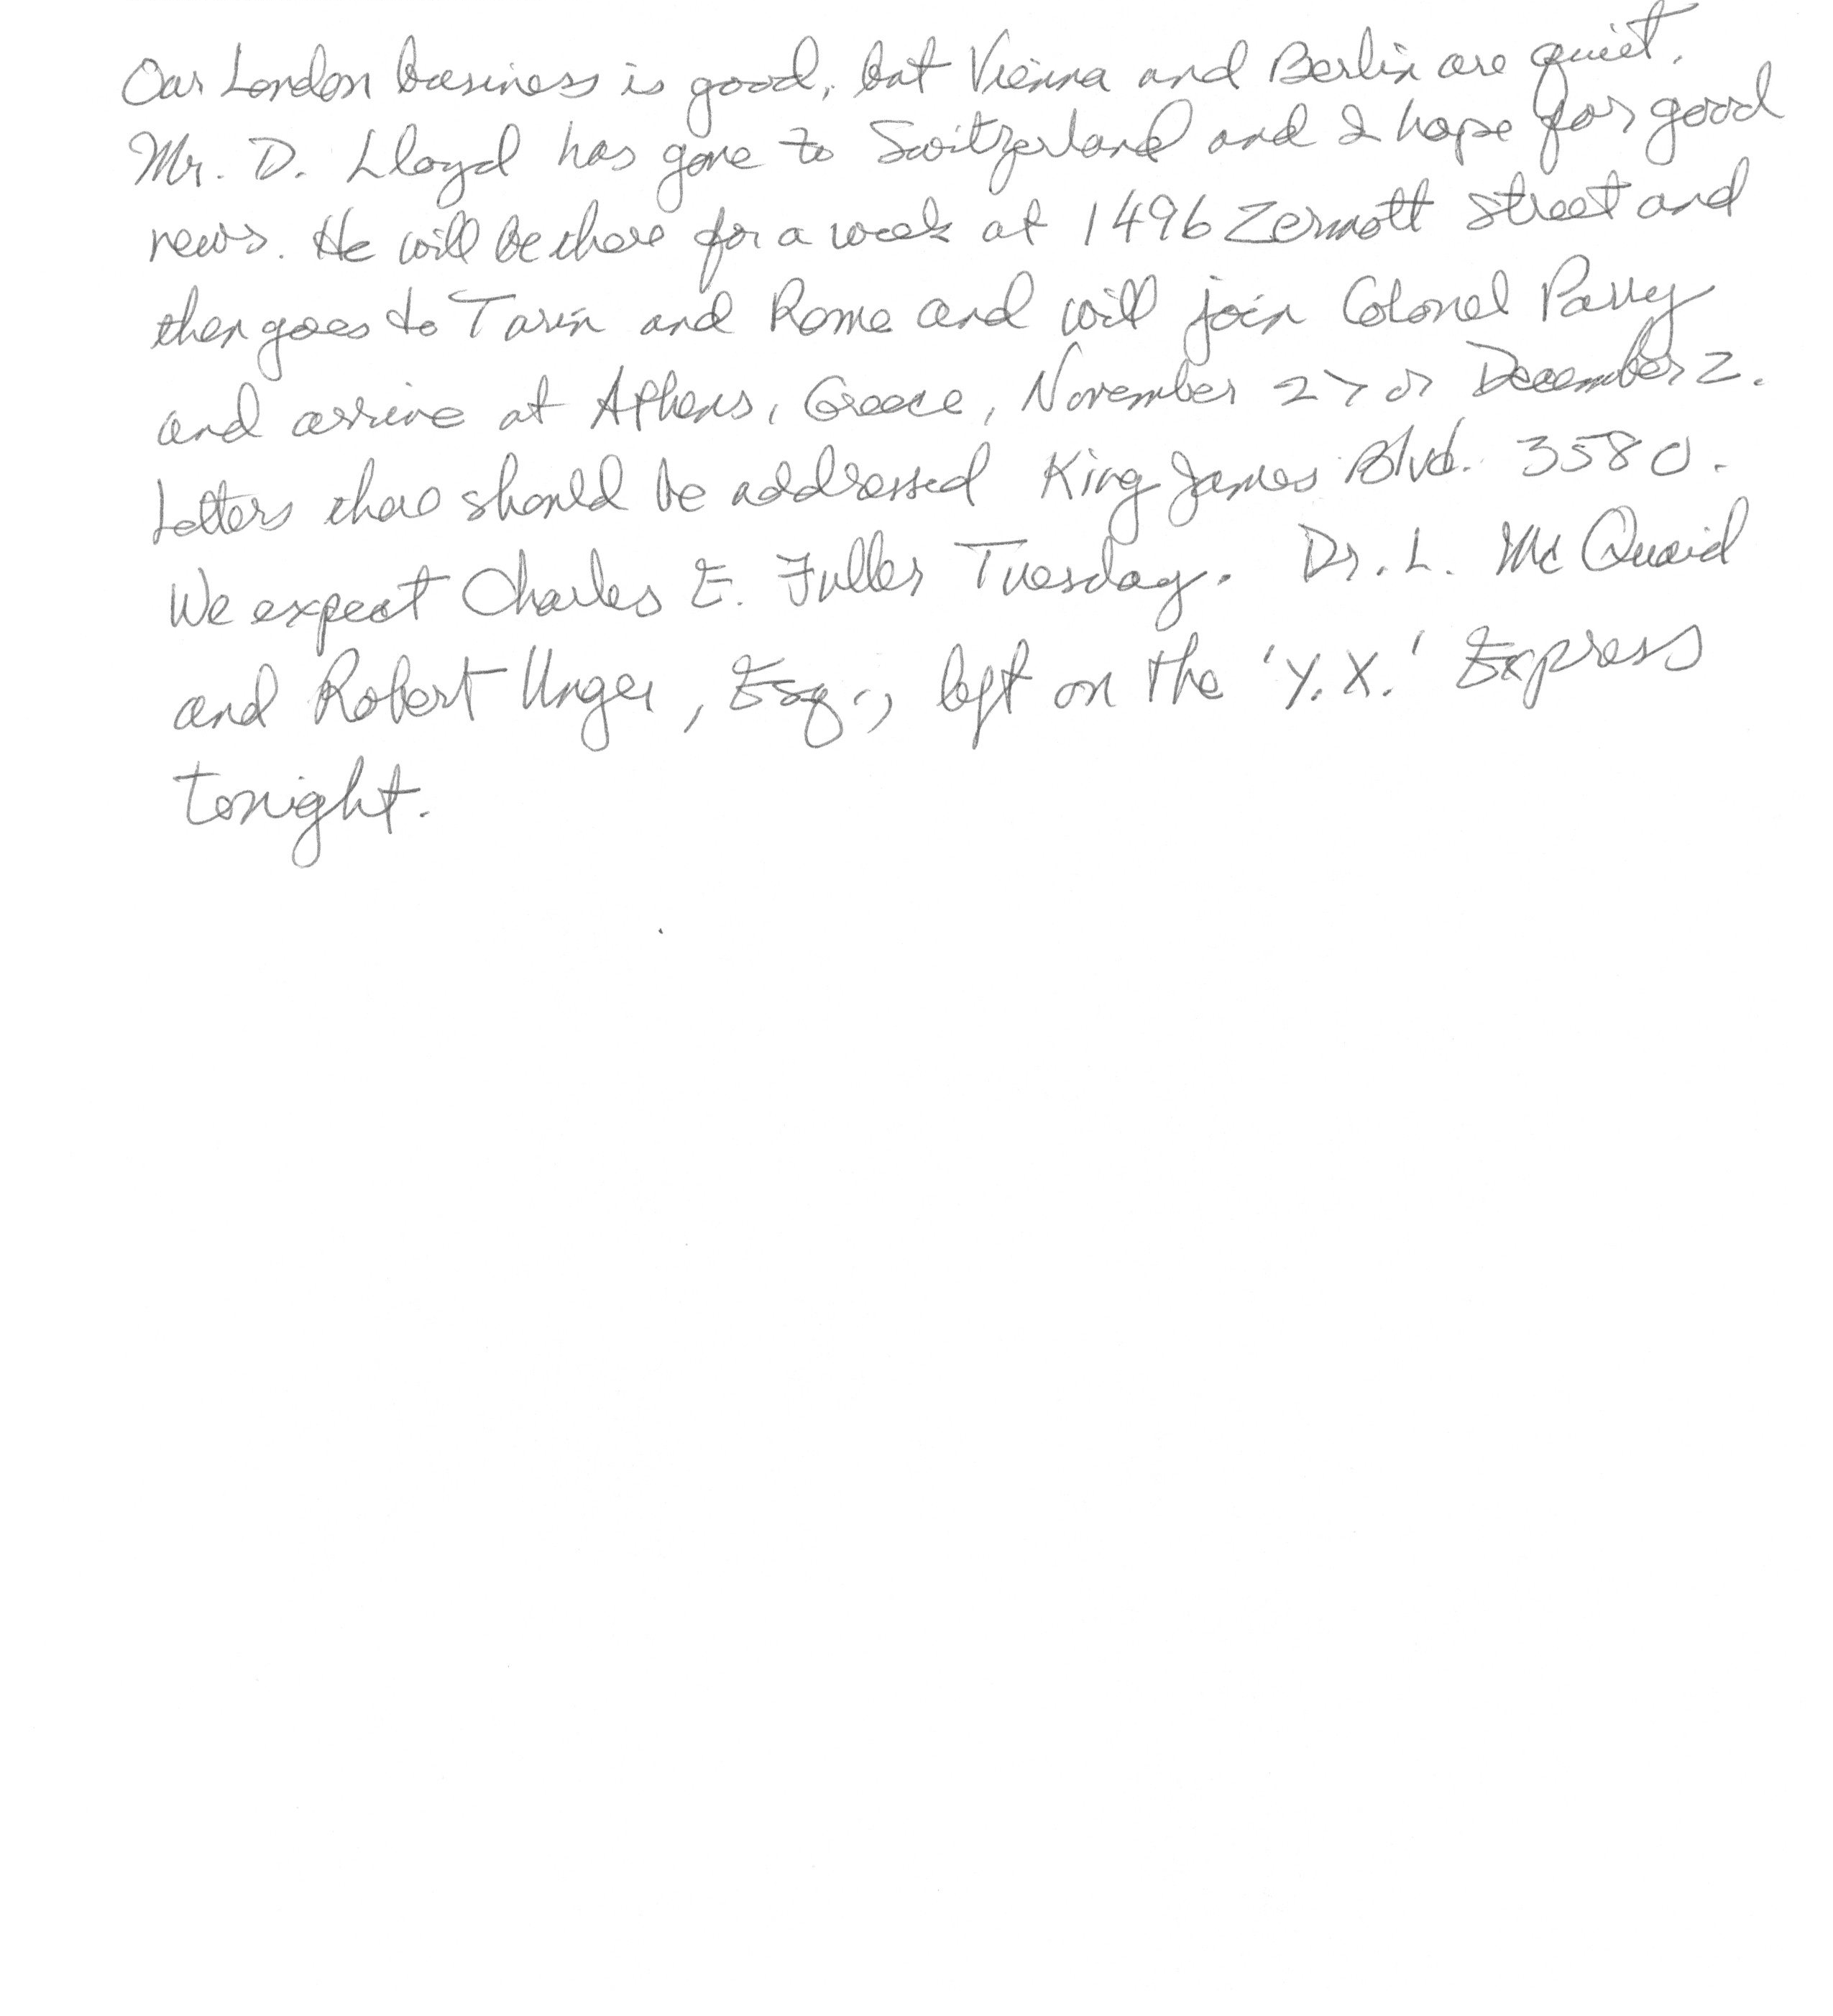 Our London business is good, but Vienna and Berlin are quiet.
Mr. D. Lloyd has gone to Switzerland and I hope for good
news. He will be there for a week at 1496 Zermott Street and
then goes to Turin and Rome and will join Colonel Parry
and arrive at Athens, Greece, November 27 or December 2.
Letters there should be addressed King James Blvd. 3580.
We expect Charles E. Fuller Tuesday. Dr. L. Mc Quaid
and Robert Unger, Esq., left on the 'Y.X.' Express
tonight.